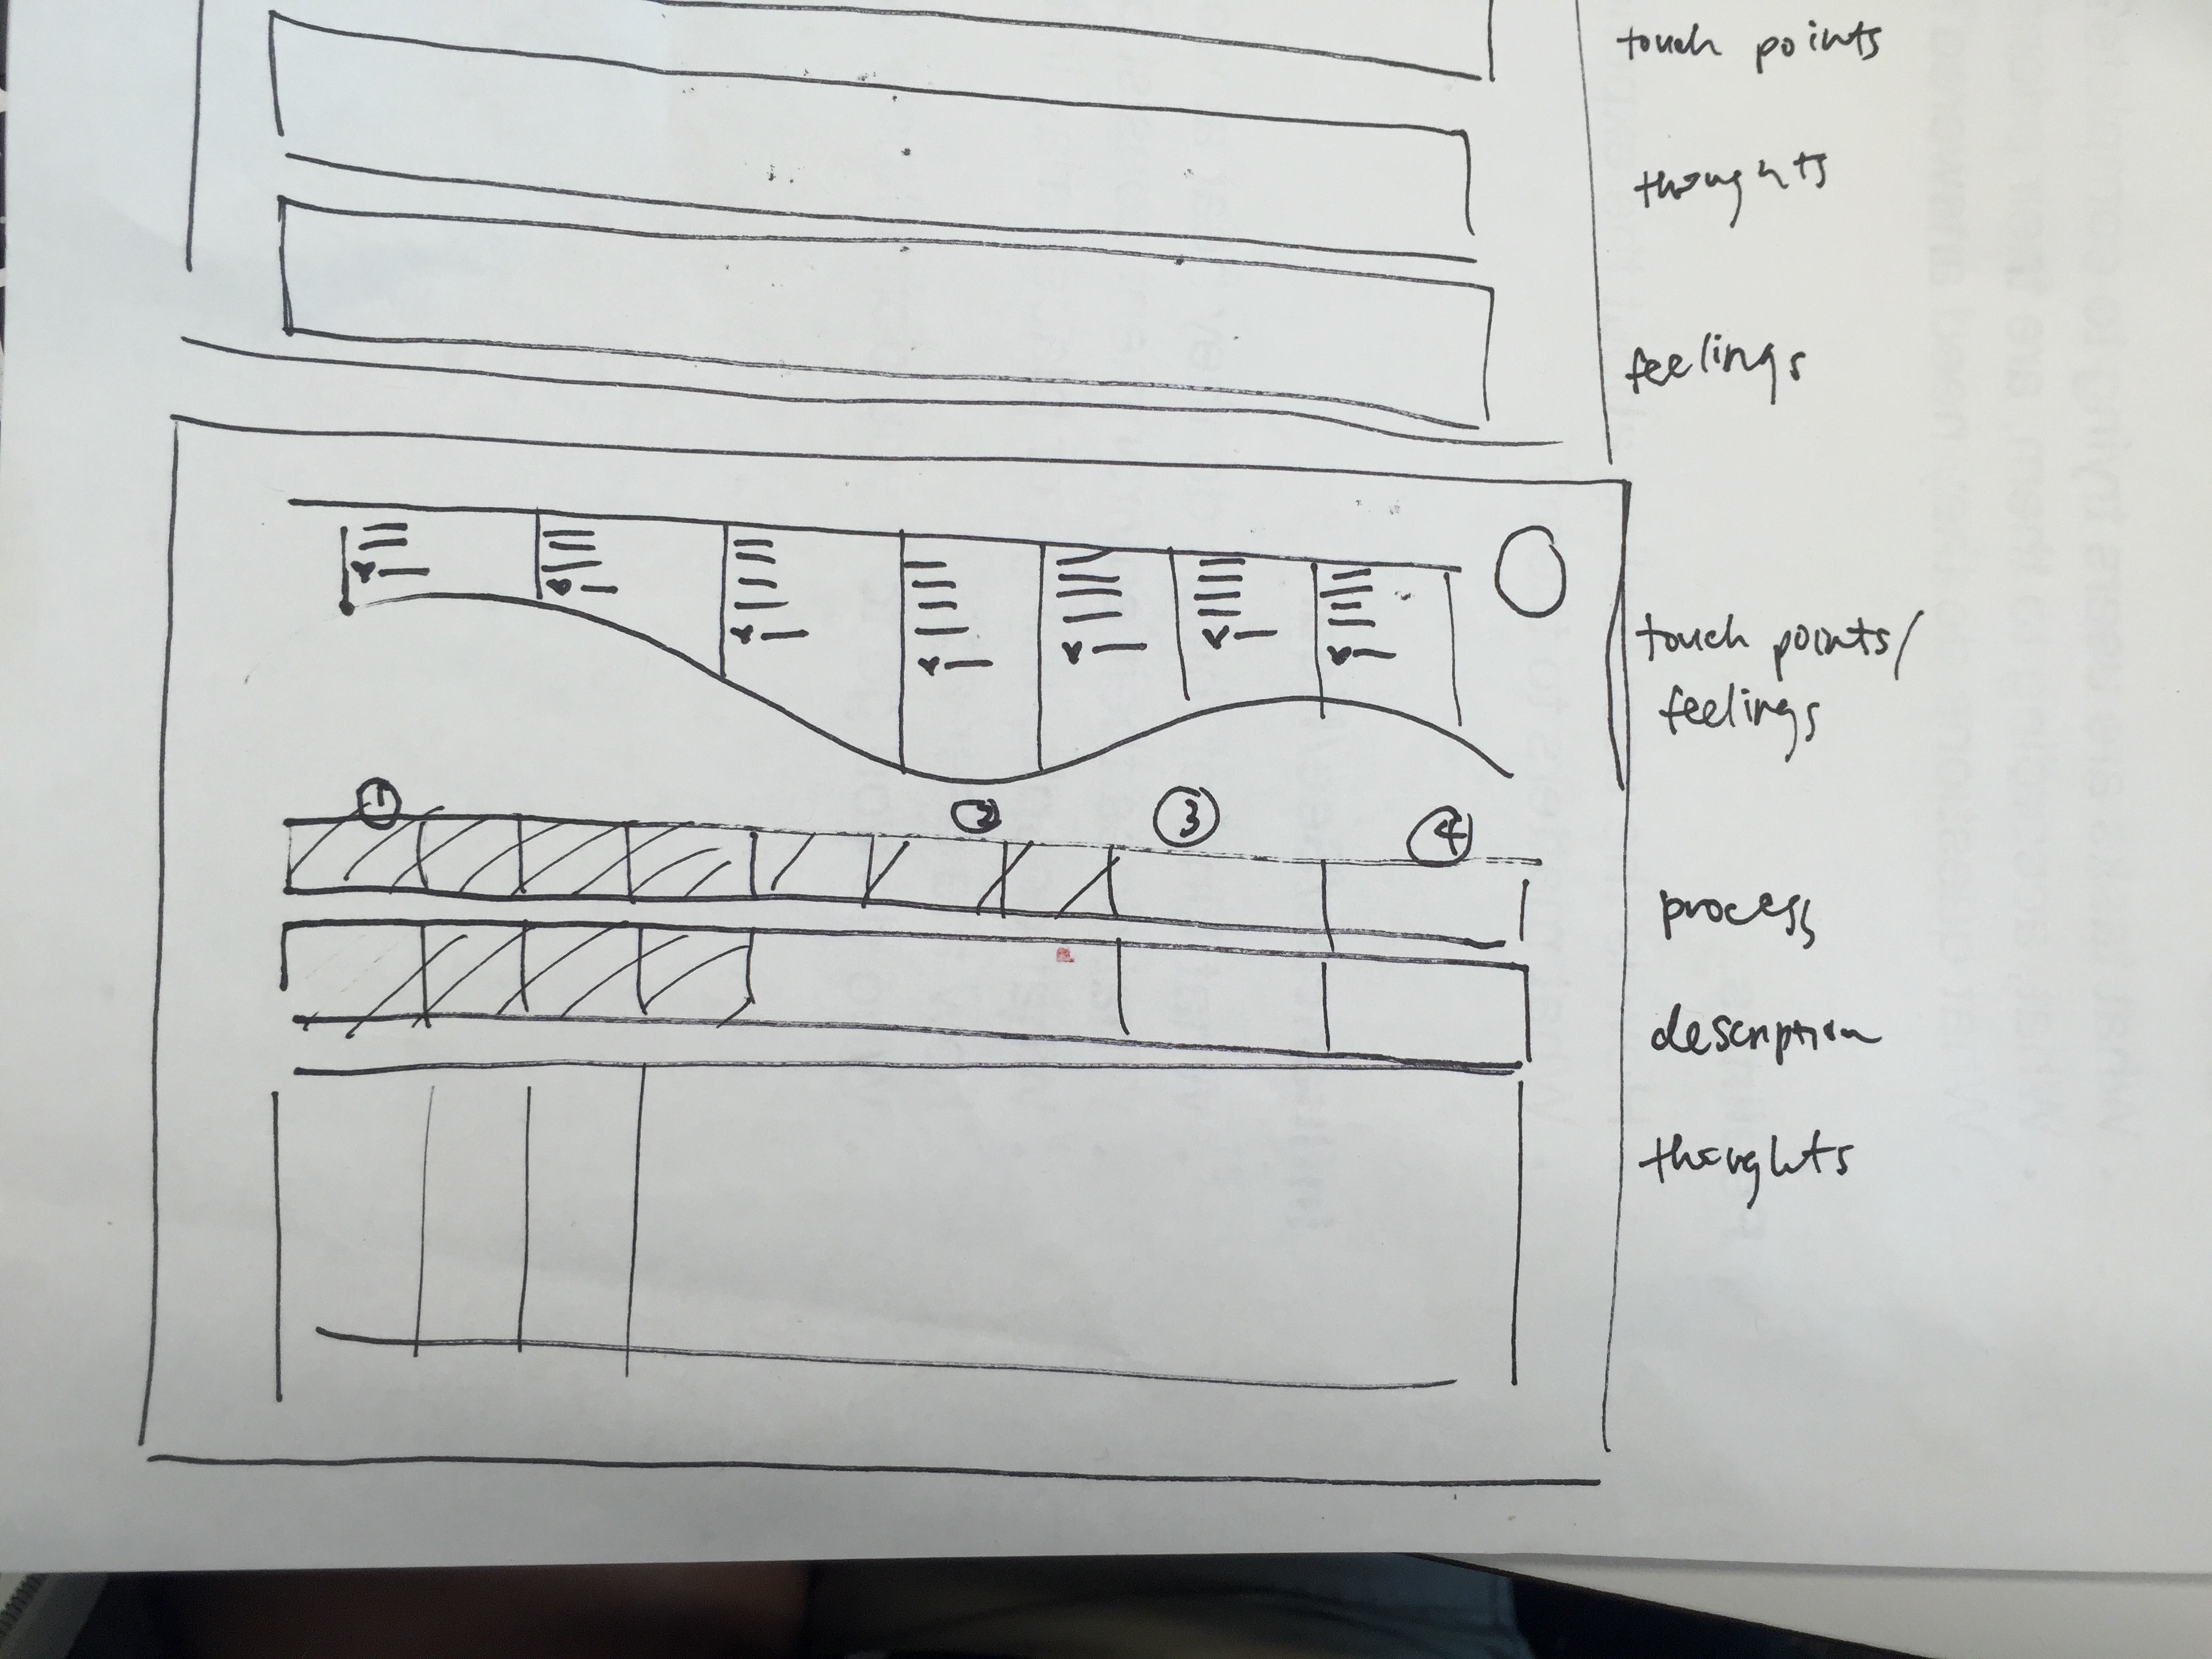 touch points
thoughts
feelings
touch points/
feelings
1 2 3 4
process
description
thoughts